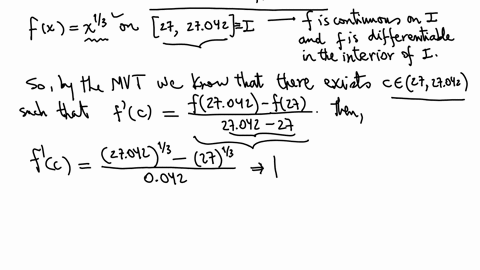 f(x) = x^{1/3} on [27, 27.042] ≡ I → f is continuous on I
and f is differentiable
in the interior of I.
So, by the MVT we know that there exists c ∈ (27, 27.042)
such that f'(c) = \frac{f(27.042) - f(27)}{27.042 - 27}. Then,
f'(c) = \frac{(27.042)^{1/3} - (27)^{1/3}}{0.042} ⇒